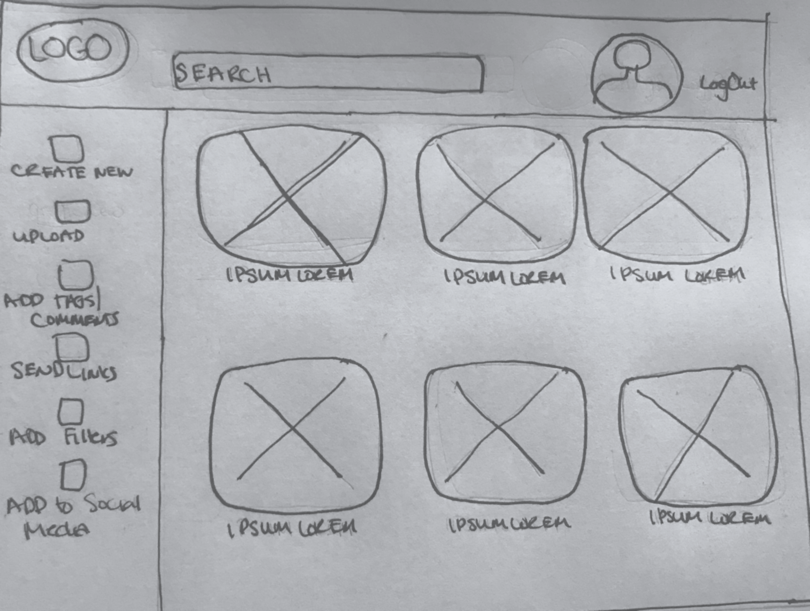 LOGO
SEARCH
LogOut
CREATE NEW
UPLOAD
ADD TAGS/
COMMENTS
SEND LINKS
ADD Filters
ADD to Social
Media
IPSUM LOREM
IPSUM LOREM
IPSUM LOREM
IPSUM LOREM
IPSUM LOREM
IPSUM LOREM